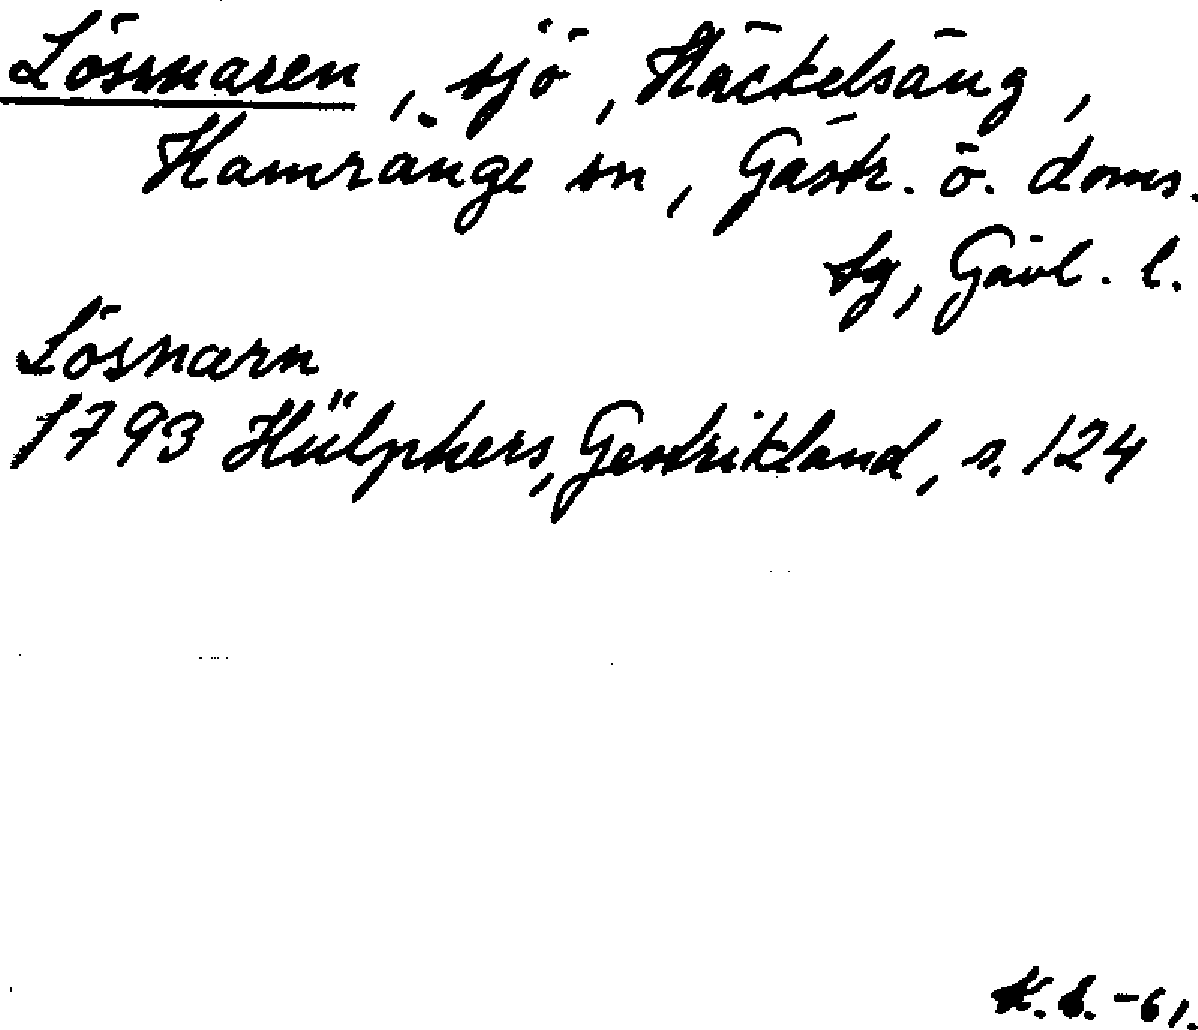 Lösnaren, sjö, Häckelsäng,
Hamrånge sn, Gästr. ö. doms.
sg, Gävl. l.
Lösnarn
1793 Hülphers, Gestrikland, s. 124
K.B.-61.